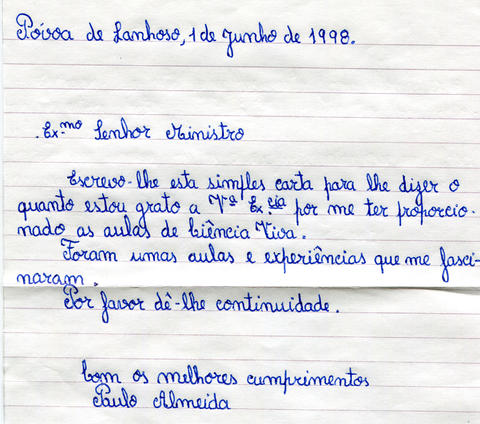 Póvoa de Lanhoso, 1 de Junho de 1998.
Ex.mo Senhor Ministro
Escrevo-lhe esta simples carta para lhe dizer o
quanto estou grato a Vª Ex.cia por me ter proporcio-
nado as aulas de Ciência Viva.
Foram umas aulas e experiências que me fasci-
naram.
Por favor dê-lhe continuidade.
Com os melhores cumprimentos
Paulo Almeida